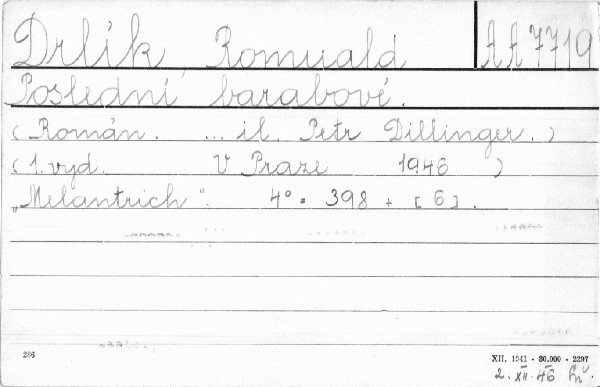 Drlík Romuald AA 7719
Poslední barabové.
(Román. ... il. Petr Dillinger.)
(1. vyd. V Praze 1946)
„Melantrich". 4° = 398 + [6].
286
XII. 1941 - 30.000 - 2297
2. XII. 46